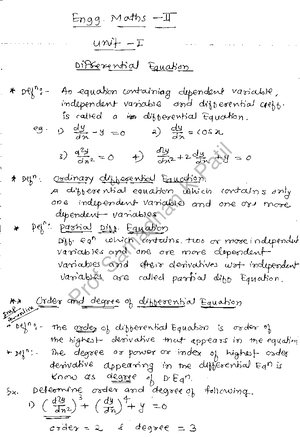 Engg. Maths - II
Unit - I
Differential Equation
* Defⁿ:- An equation containing dependent variable,
independent variable and differential coeff.
is called a differential Equation.
eg. 1) dy/dx - y = 0 2) dy/dx = cosx
3) d²y/dx² = 0 4) d²y/dx² + 2 dy/dx + y = 0
* Defⁿ: Ordinary differential Equation:
A differential equation which contains only
one independent variable and one or more
dependent variables
* Defⁿ: Partial Diff. Equation
Diff Eqⁿ which contains two or more independent
variables and one or more dependent
variables and their derivatives wrt independent
variables are called partial diff Equation.
** Order and degree of differential Equation
* Defⁿ:- The order of differential Equation is order of
the highest derivative that appears in the equation
* Defⁿ:- The degree or power or index of highest order
derivative appearing in the differential Eqⁿ is
know as degree of D.Eqⁿ.
Ex. Determine order and degree of following.
1) (d²y/dx²)³ + (dy/dx)⁴ + y = 0
order = 2 & degree = 3
Prof. Patil